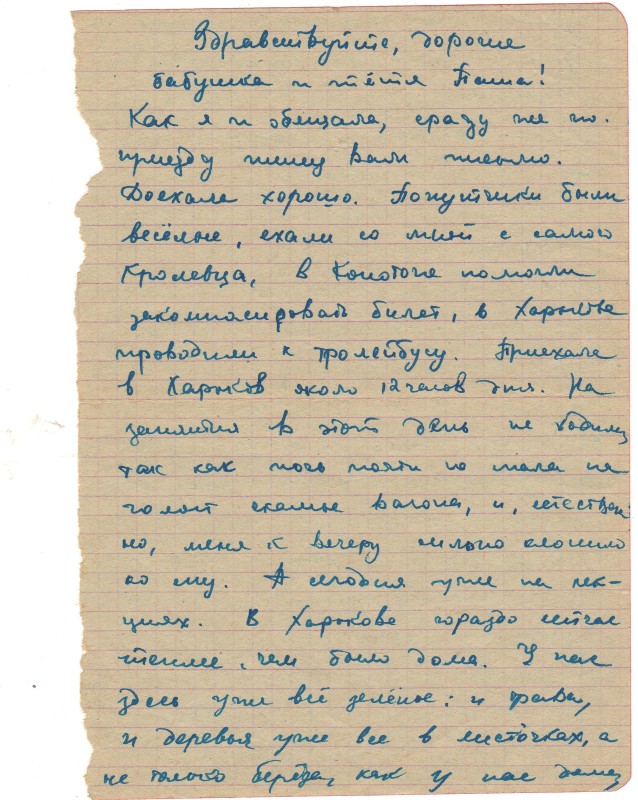 Здравствуйте, дорогие
бабушка и тётя Паша!
Как я и обещала, сразу же по
приезду пишу Вам письмо.
Доехала хорошо. Попутчики были
весёлые, ехали со мной с самого
Кролевца, в Конотопе помогли
закомпасировать билет, в Харькове
проводили к тролейбусу. Приехала
в Харьков около 12 часов дня. На
занятия в этот день не ходила,
так как ночь почти не спала на
голой скамье вагона, и, естествен-
но, меня к вечеру сильно клонило
ко сну. А сегодня уже на лек-
циях. В Харькове гораздо сейчас
теплее, чем было дома. У нас
здесь уже всё зелёное: и трава,
и деревья уже все в листочках, а
не только берёза, как у нас дома